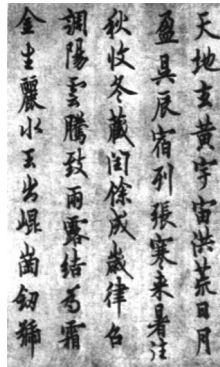 天地玄黃宇宙洪荒日月
盈昃辰宿列張寒来暑往
秋收冬藏閏餘成歲律召
調陽雲騰致雨露結為霜
金生麗水玉出崐崗釼號